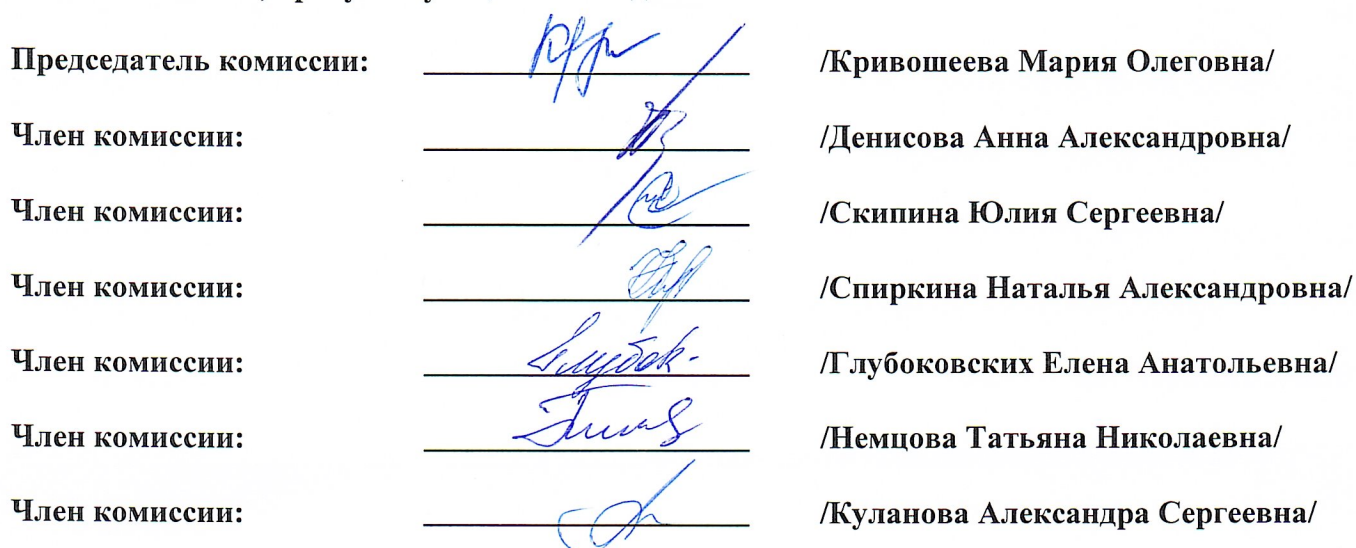 Председатель комиссии: /Кривошеева Мария Олеговна/
Член комиссии: /Денисова Анна Александровна/
Член комиссии: /Скипина Юлия Сергеевна/
Член комиссии: /Спиркина Наталья Александровна/
Член комиссии: /Глубоковских Елена Анатольевна/
Член комиссии: /Немцова Татьяна Николаевна/
Член комиссии: /Куланова Александра Сергеевна/